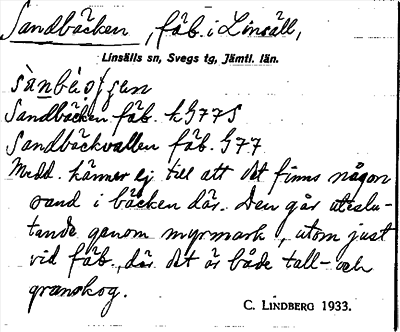 Sandbäcken, fäb. i Linsäll,
Linsälls sn, Svegs tg, Jämtl. län.
Sandbäcken fäb. k G77S
Sandbäckvallen fäb. G77.
Medd. känner ej till att det finns någon
sand i bäcken där. Den går uteslu-
tande genom myrmark, utom just
vid fäb., där det är både tall- och
granskog.
C. LINDBERG 1933.